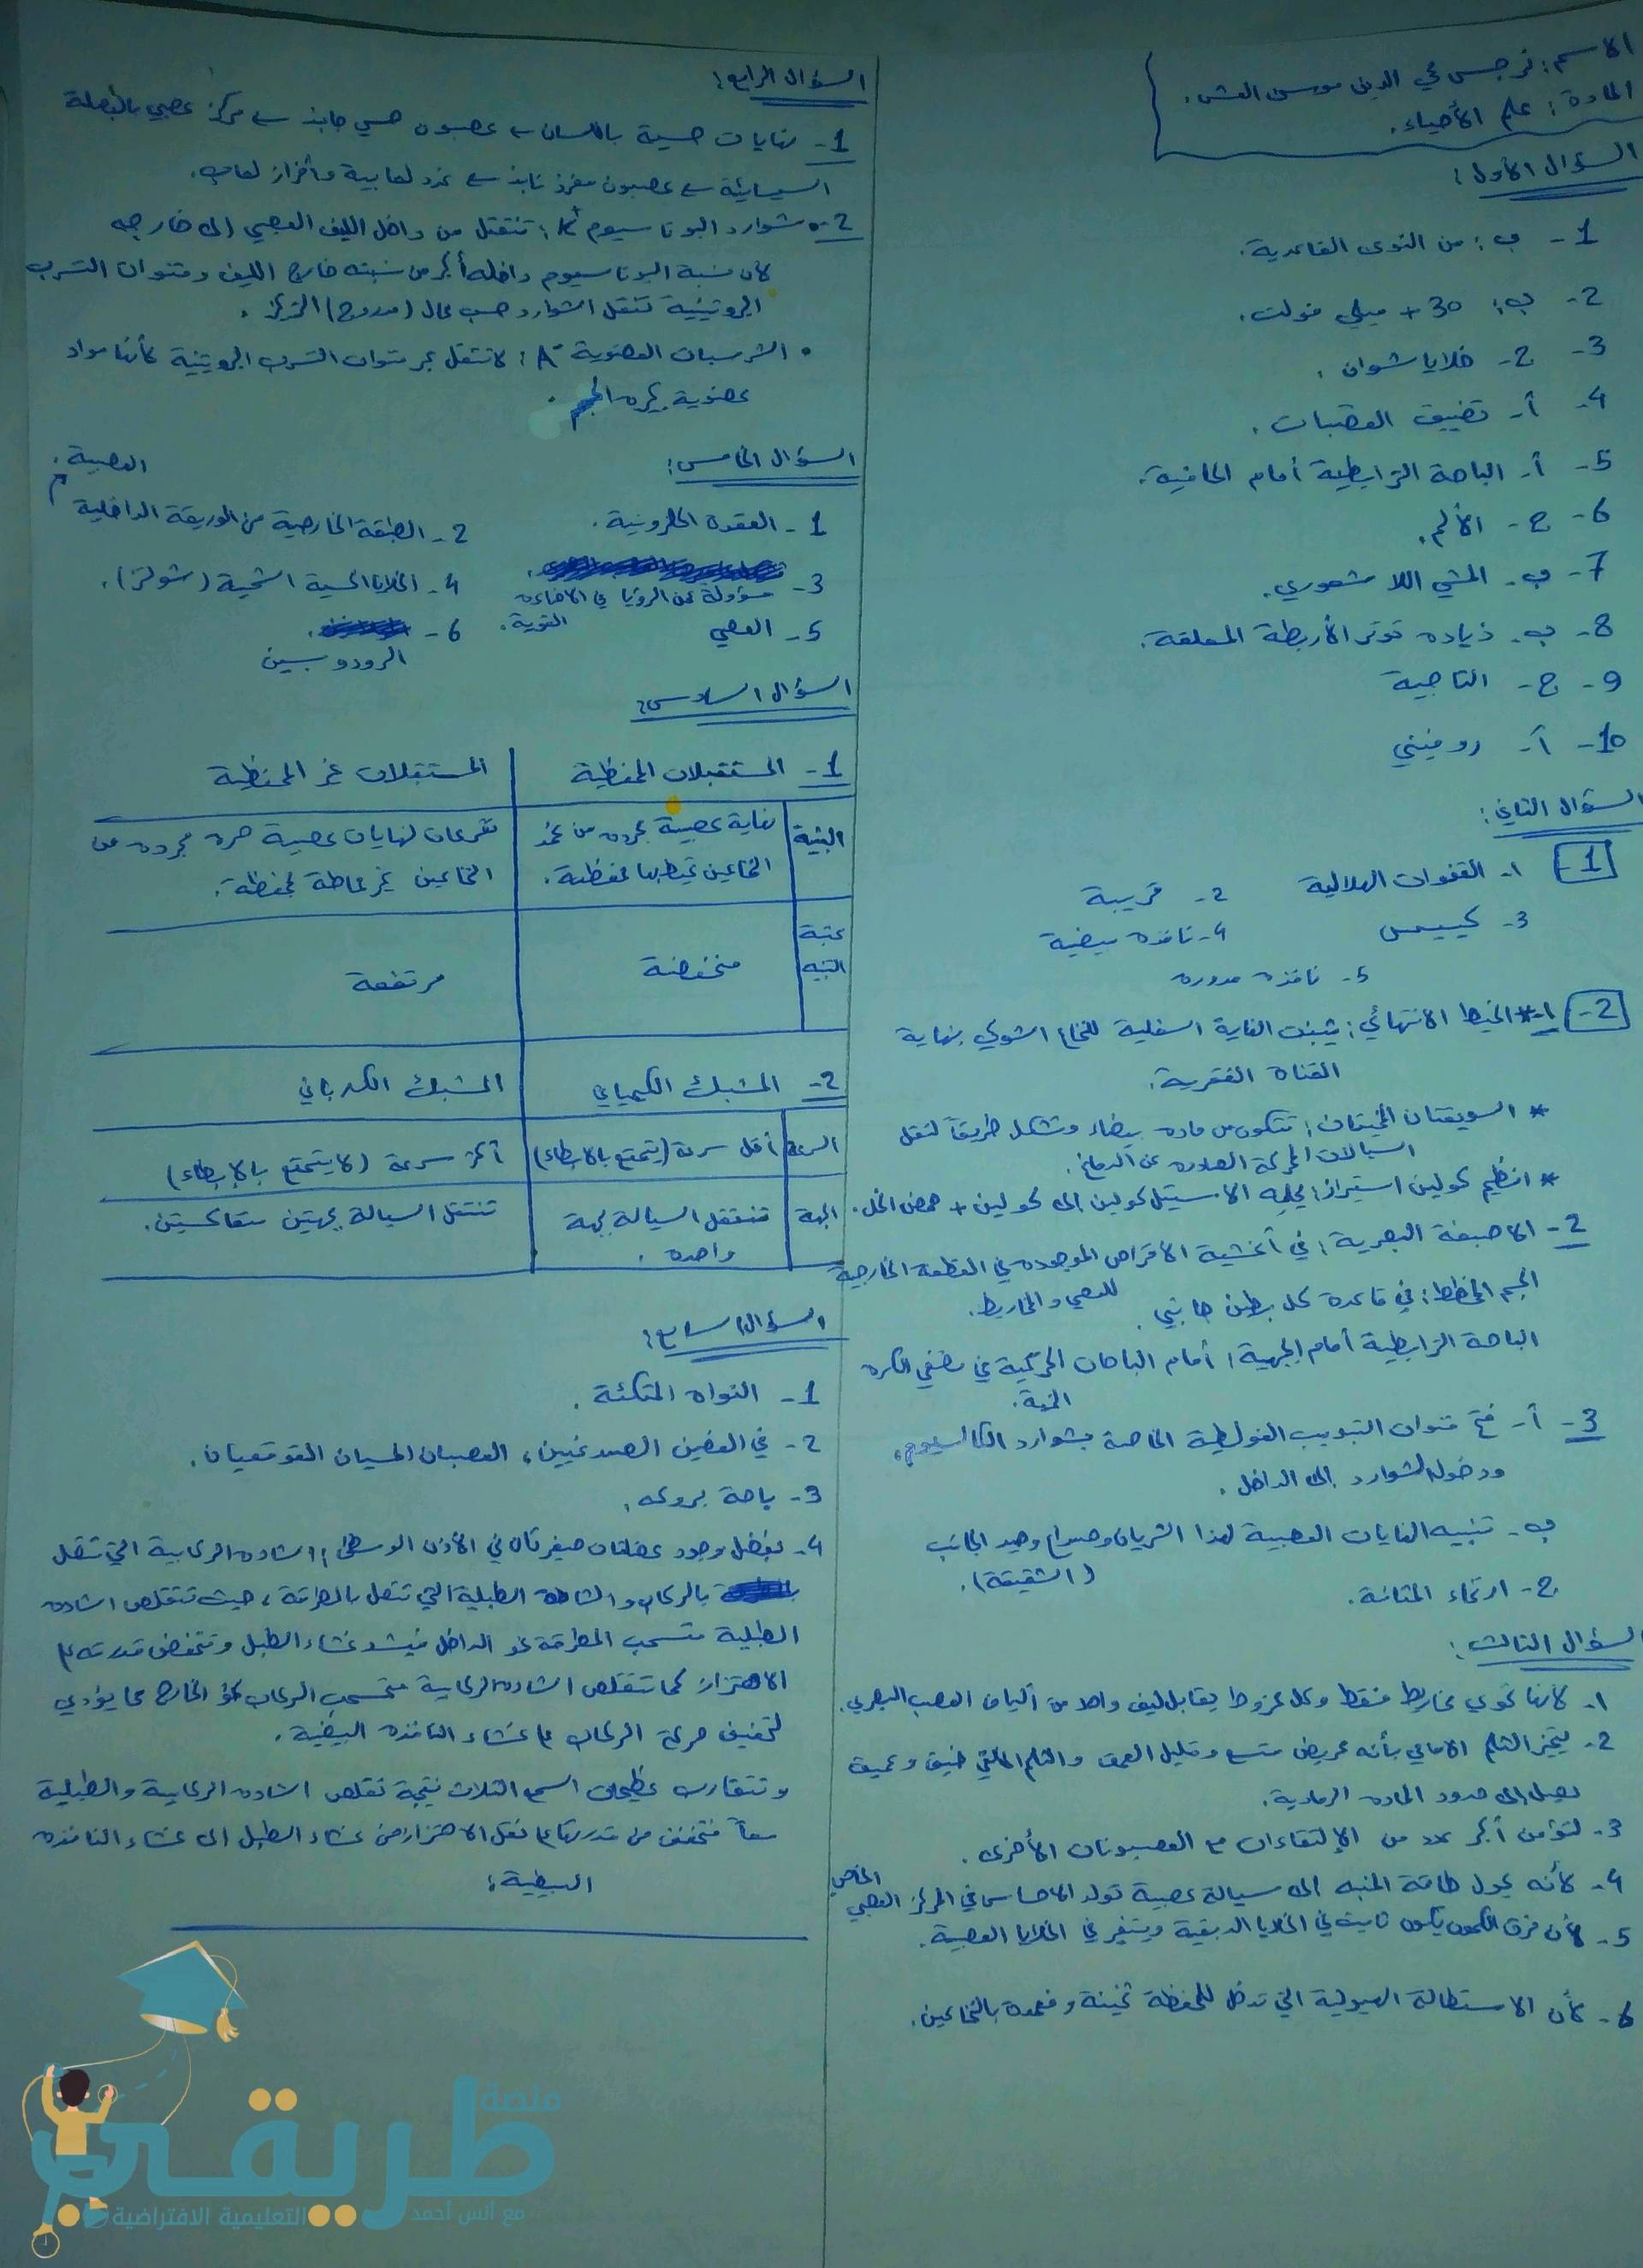 الاسم: نرجس محي الدين موسى العش.
المادة: علم الأحياء.
السؤال الأول:
1- ب: من النوى القاعدية.
2- ب: 30+ ميلي فولت.
3- ج- خلايا شوان.
4- أ- تضييق القصبات.
5- أ- الباحة الترابطية أمام الجافية.
6- ج- الألم.
7- ب- المشي اللا شعوري.
8- ب- زياده توتر الأربطة المعلقة.
9- ج- التاجية
10- أ- روفيني
السؤال الثاني:
1- ١- القنوات الهلالية 2- قريبة
3- كييس 4- نافذه بيضية
5- نافذه مدوره
2- ١- * الخيط الانتهائي: يثبت النهاية السفلية للنخاع الشوكي بنهاية
القناة الفقرية.
* السويقتان المخيتان: تتكون من ماده بيضاء وتشكل طريقاً لنقل
السيالات المحركة الصادره عن الدماغ.
* انظيم كولين استيراز: يحلمه الاستيل كولين الى كولين + حمض الخل.
2- الاصبغة البصرية: في أغشية الاقراص الموجوده في القطعة الخارجية
للعصي والمخاريط.
الجسم المخطط: في قاعدة كل بطين جانبي.
الباحة الترابطية أمام الجبهية: أمام الباحات الحركية في نصفي الكره
المخية.
3- أ- فتح قنوات التبويب الفولطية الخاصة بشوارد الكالسيوم،
ودخول الشوارد إلى الداخل.
ب- تنبيه النهايات العصبية لهذا الشريان وصداع وحيد الجانب
(الشقيقة).
ج- ارتخاء المثانة.
السؤال الثالث:
١- لأنها تحوي مخاريط فقط وكل مخروط يقابل ليف واحد من ألياف العصب البصري.
2- يتميز الثلم الامامي بأنه عريض متسع وقليل العمق والثلم الخلفي ضيق وعميق
يصل إلى حدود الماده الرمادية.
3- لتؤمن أكبر عدد من الإلتقاءات مع العصبونات الأخرى.
4- لأنه يحول طاقة المنبه الى سيالة عصبية تولد الاحساس في المركز العصبي الخاص
5- لأن فرق الكمون يكون ثابت في الخلايا الدبقية ويتغير في الخلايا العصبية.
6- لأن الاستطالة الهيولية التي تدخل للمحفظة ثخينة ومغمدة بالنخاعين.
السؤال الرابع:
1- نهايات حسية باللسان ← عصبون حسي جابذ ← مركز عصبي بالبصلة
السيسائية ← عصبون مفرز نابذ ← غدد لعابية وإفراز لعاب.
2- • شوارد البوتاسيوم K+: تنتقل من داخل الليف العصبي إلى خارجه
لأن نسبة البوتاسيوم داخله أكبر من نسبته خارج الليف وقنوات التسرب
البروتينية تنقل الشوارد حسب ممال (مدروج) التركيز.
• الشرسبات العضوية A-: لا تنتقل عبر قنوات التسرب البروتينية لأنها مواد
عضوية كبيره الحجم.
السؤال الخامس:
1- العقدة الحلزونية.
2- الطبقة الخارجية من الوريقة الداخلية العصبية.
3- مسؤولة عن الرؤيا في الاضاءه القوية.
4- الخلايا الحسية الشمية (شولتز).
5- العصي
6- الرودوبسين
السؤال السادس:
1- المستقبلات المحفظية | المستقبلات غير المحفظية
البنية | نهاية عصبية مجرده من غمد النخاعين تحيط بها محفظة. | تفرعات لنهايات عصبية حره مجرده من النخاعين غير محاطة بمحفظة.
عتبة التنبيه | منخفضة | مرتفعة
2- المشبك الكيميائي | المشبك الكهربائي
السرعة | أقل سرعة (يتمتع بالابطاء) | أكثر سرعة (لا يتمتع بالإبطاء)
الجهة | تنتقل السيالة بجهة واحده. | تنتقل السيالة بجهتين متعاكستين.
السؤال السابع:
1- النواه المتكئة.
2- في الفصين الصدغيين، العصبان الحسيان القوقعيان.
3- باحة بروكه.
4- بفضل وجود عضلتان صغيرتان في الأذن الوسطى: الشاده الركابية التي تتصل
بالركاب والشادة الطبلية التي تتصل بالمطرقة، حيث تتقلص الشاده
الطبلية فتسحب المطرقة نحو الداخل فيشد غشاء الطبل وتنخفض قدرته على
الاهتزاز كما تتقلص الشاده الركابية فتسحب الركاب نحو الخارج مما يؤدي
لتخفيف حركة الركاب على غشاء النافذه البيضية.
وتتقارب عظيمات السمع الثلاث نتيجة تقلص الشاده الركابية والطبلية
معاً فتخفف من قدرتها على نقل الاهتزاز من غشاء الطبل الى غشاء النافذه
البيضية.
منصة
طريقي
التعليمية الافتراضية مع أنس أحمد